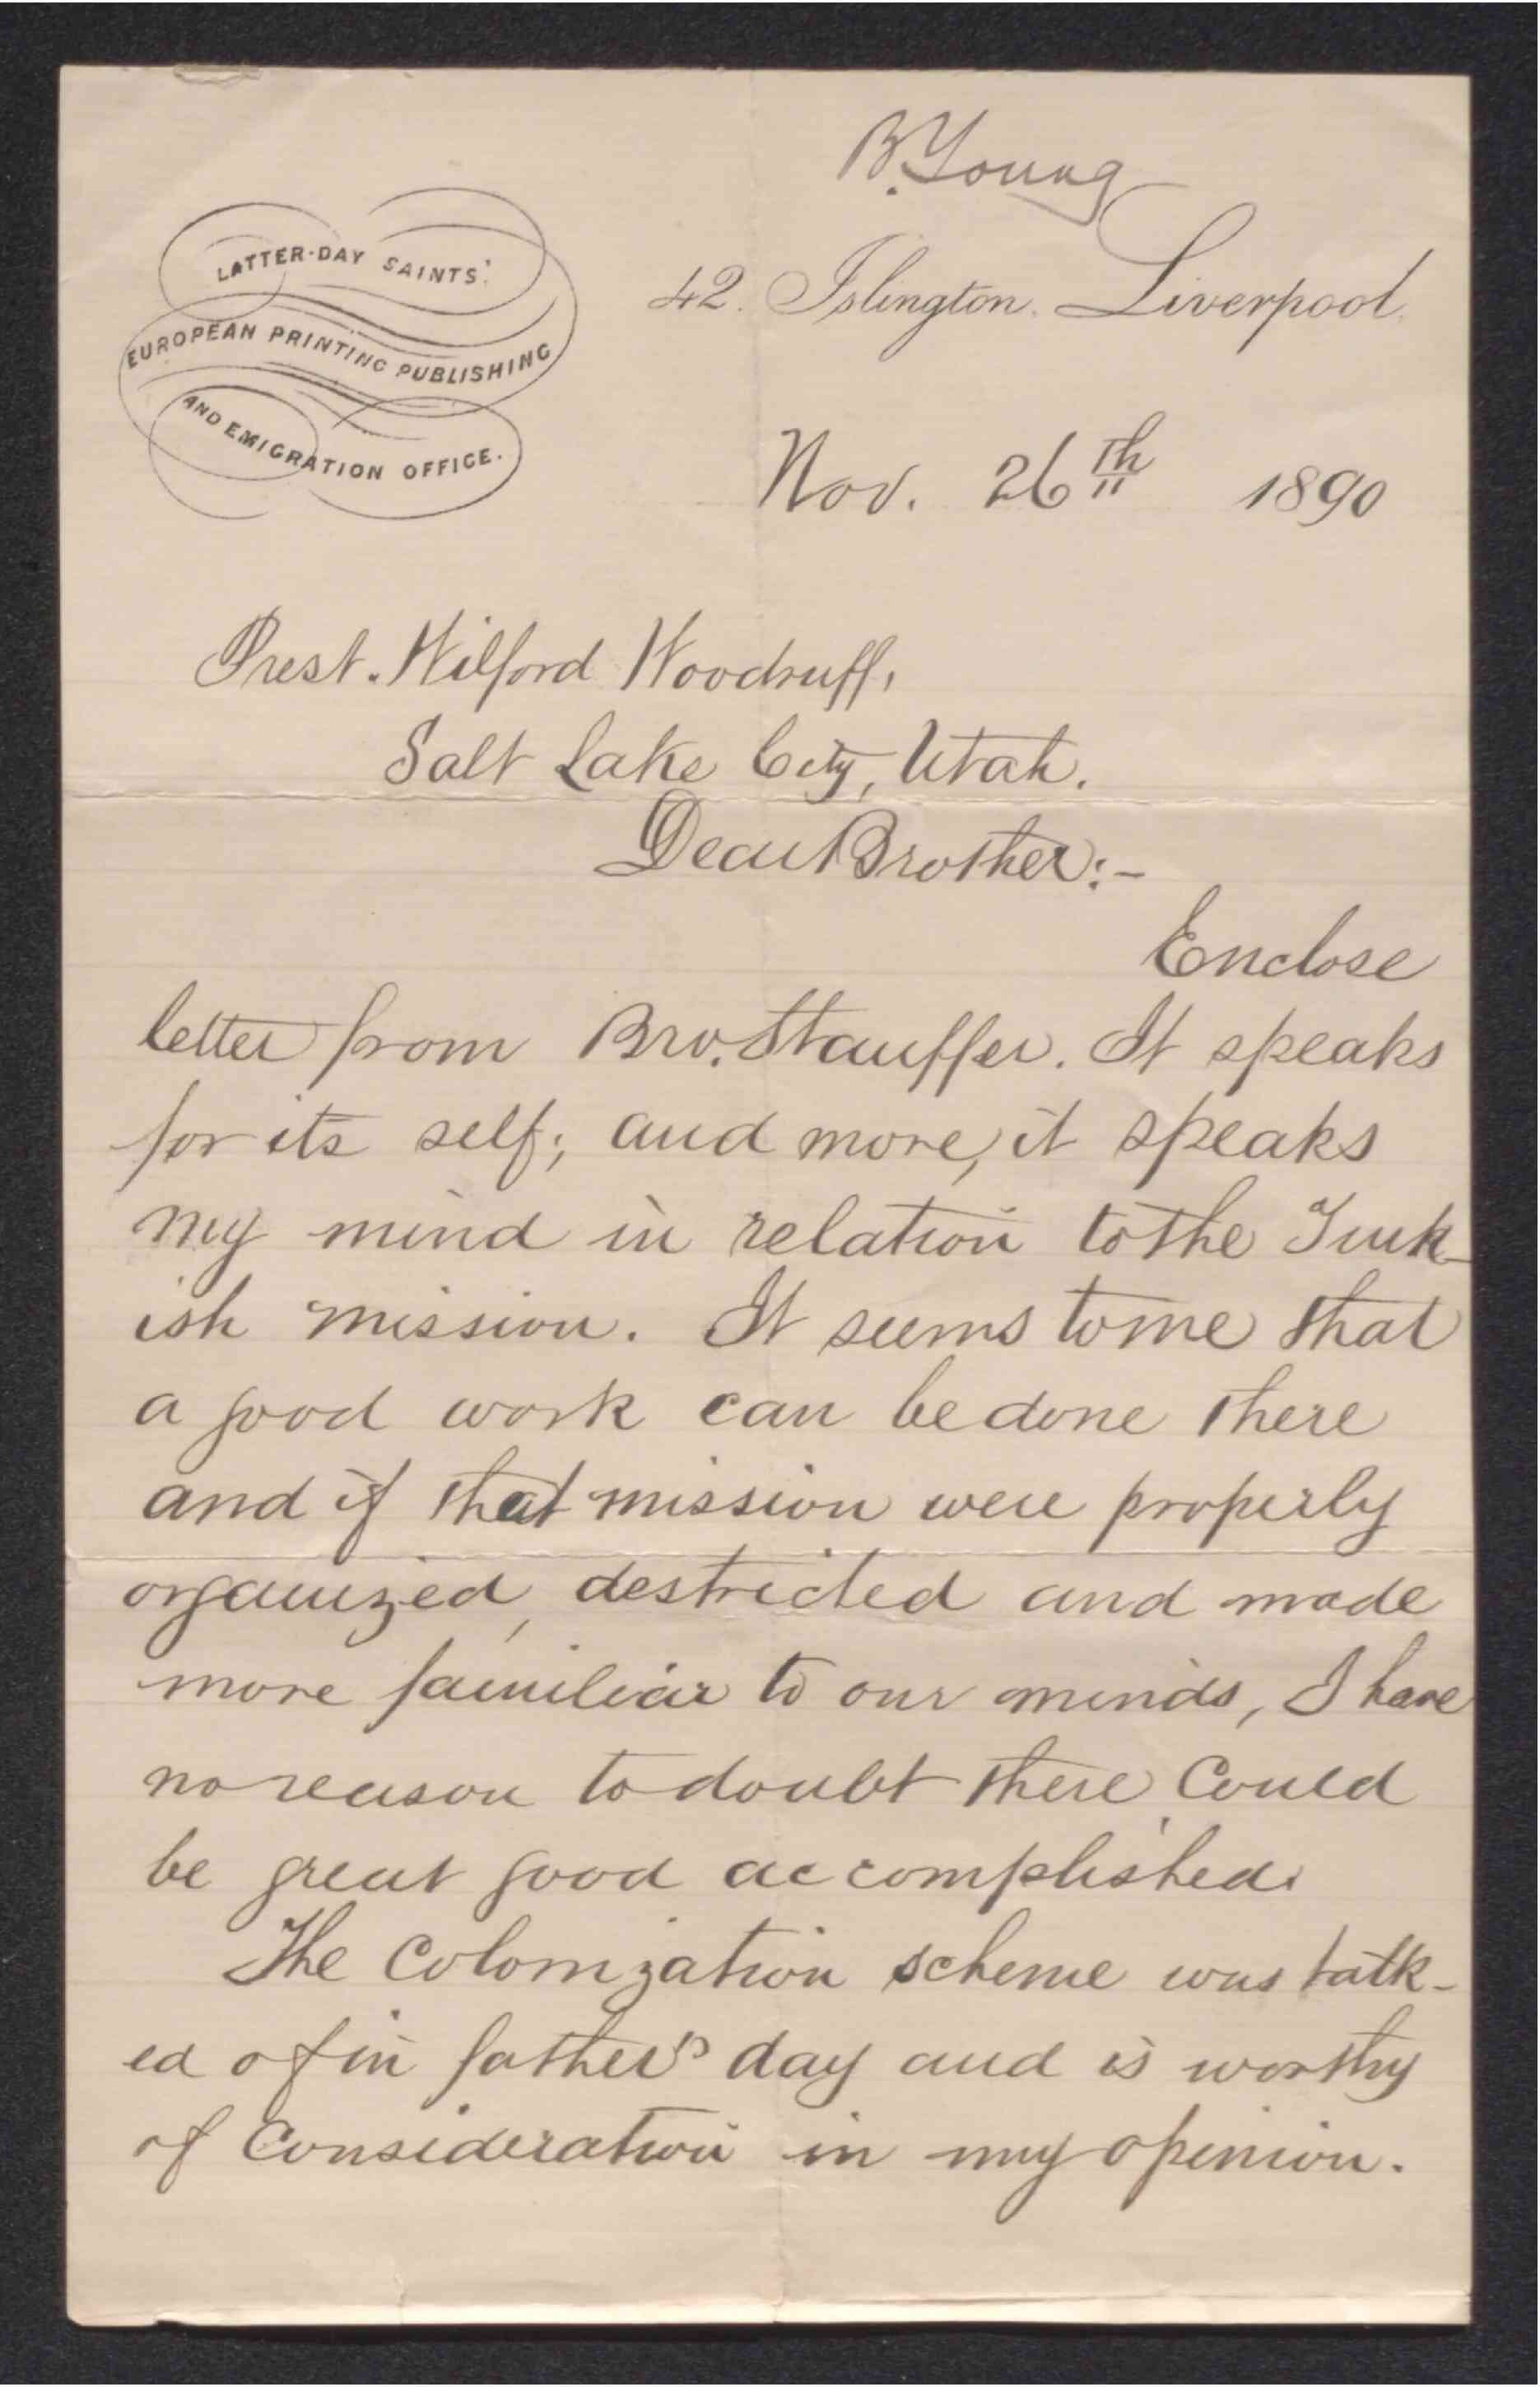 B. Young
LATTER-DAY SAINTS'
EUROPEAN PRINTING PUBLISHING
AND EMIGRATION OFFICE.
42. Islington. Liverpool.
Nov. 26th 1890
Prest. Wilford Woodruff,
Salt Lake City, Utah.
Dear Brother:-
Enclose
letter from Bro. Stauffer. It speaks
for its self; and more, it speaks
my mind in relation to the Turk-
ish mission. It seems to me that
a good work can be done there
and if that mission were properly
organized, destricted and made
more familiar to our minds, I have
no reason to doubt there could
be great good accomplished.
The Colonization scheme was talk-
ed of in father's day and is worthy
of Consideration in my opinion.